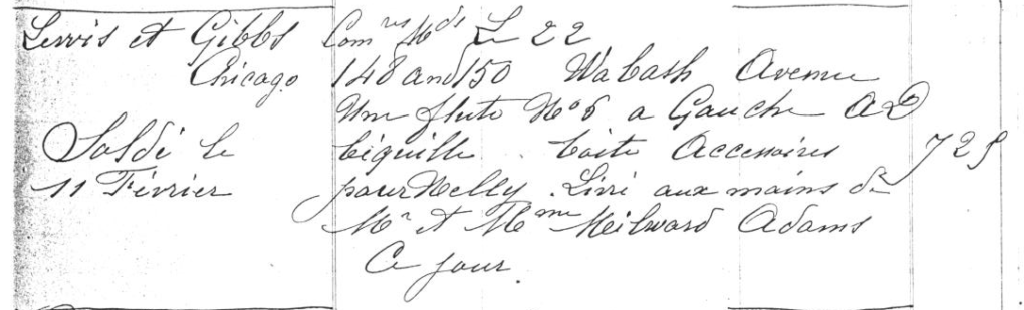 Lewis et Gibbs
Chicago
Soldé le
11 Février
Com res Md Le 22
148 and 150 Wabash Avenue
Une flute No 6 a Gauche
béquille. boite Accessoires 725
pour Nelly. Livré aux mains de
Mr et Mme Meilward Adams
Ce jour.